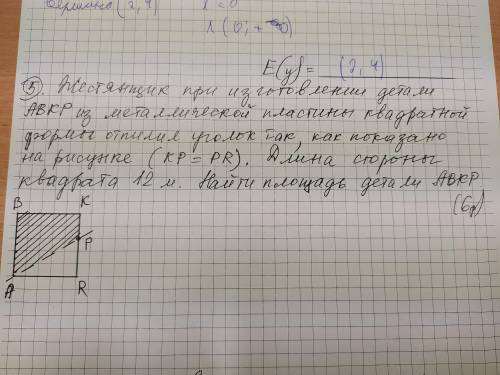 Вершина (2, 4) x = 0
Λ (0; +∞)
E(y) = (2, 4)
⑤. Жестянщик при изготовлении детали
АВКР из металлической пластины квадратной
формы отпилил уголок так, как показано
на рисунке (КР = РR). Длина стороны
квадрата 12 м. Найти площадь детали АВКР
(6р)
В К
Р
А R